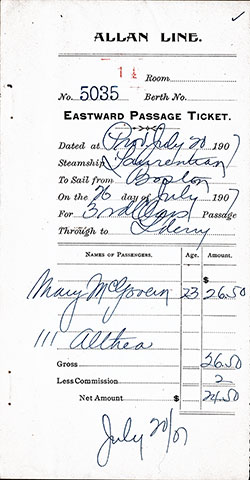 ALLAN LINE.
1 1/2 Room
No. 5035 Berth No.
EASTWARD PASSAGE TICKET.
Dated at Prov July 20 1907
Steamship Laurentian
To Sail from Boston
On the 26 day of July 1907
For 3rd Class Passage
Through to L'derry
NAMES OF PASSENGERS. Age. Amount.
Mary McGovern 23 26.50
111 Althea
Gross 26.50
Less Commission 2
Net Amount $ 24.50
July 20/07